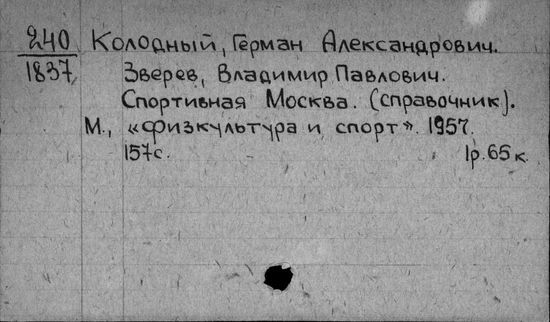 240 Колодный, Герман Александрович.
1837 Зверев, Владимир Павлович.
Спортивная Москва. (справочник).
М., «Физкультура и спорт». 1957.
157с. 1р.65к.